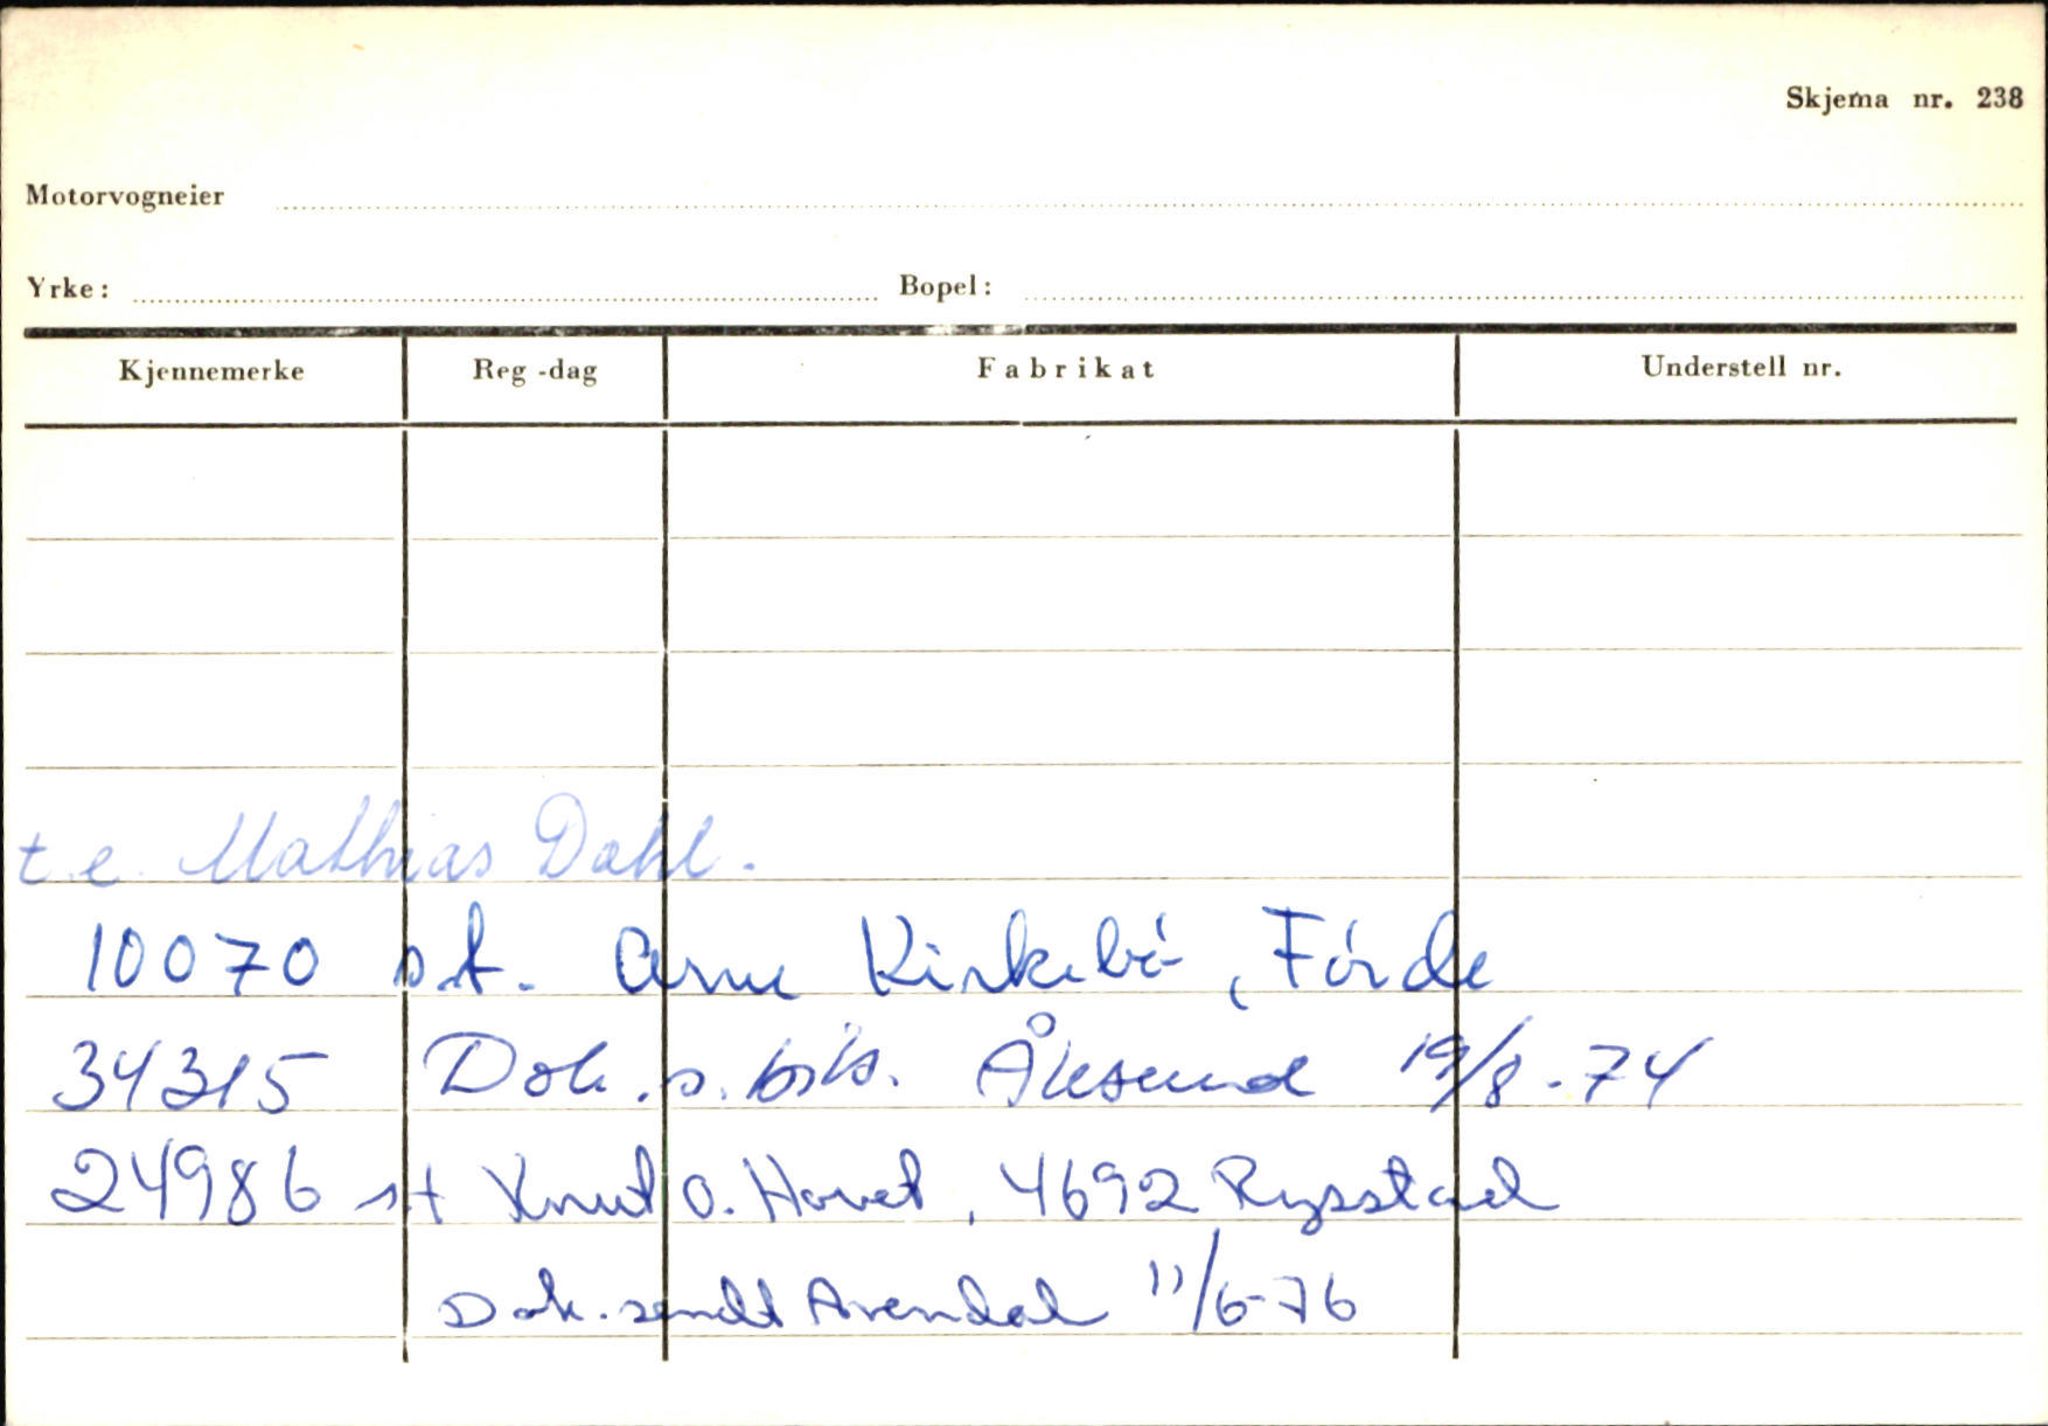 Skjema nr. 238
Motorvogneier
Yrke: Bopel:
Kjennemerke Reg-dag Fabrikat Understell nr.
t.e. Mathias Dahl.
10070 s.t. Arne Kirkebö, Förde
34315 Dok. s. bils. Ålesund 19/8-74
24986 st Knut O. Hovet, 4692 Rysstad
Dok. sendt Arendal 11/6-76